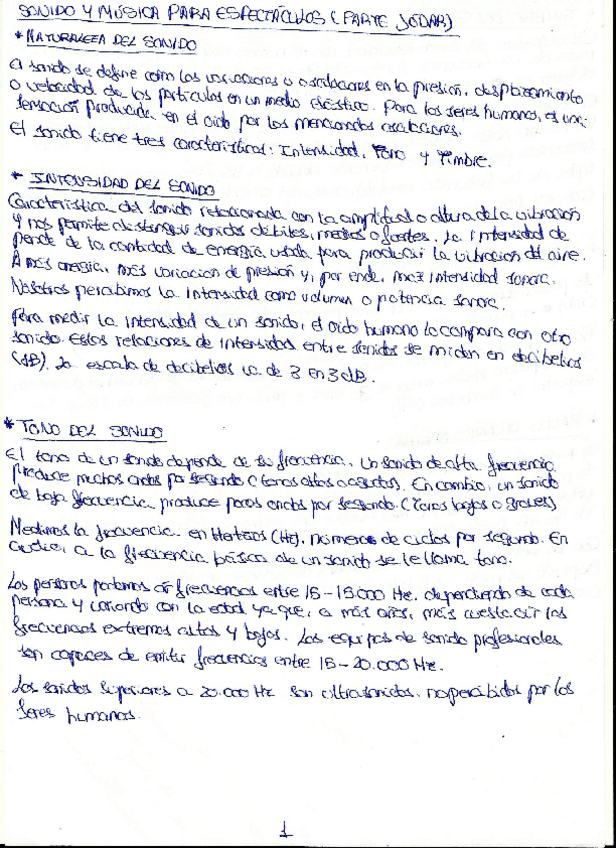 SONIDO Y MÚSICA PARA ESPECTÁCULOS (PARTE JÓDAR)
* NATURALEZA DEL SONIDO
El sonido se define como las variaciones u oscilaciones en la presión, desplazamiento
o velocidad de las partículas en un medio elástico. Para los seres humanos, es una
sensación producida en el oido por las mencionadas oscilaciones.
El sonido tiene tres características: Intensidad, Tono y Timbre.
* INTENSIDAD DEL SONIDO
Característica del sonido relacionada con la amplitud o altura de la vibración
y nos permite distinguir sonidos débiles, medios o fuertes. La intensidad de
pende de la cantidad de energía usada para producir la vibración del aire.
A más energía, más variación de presión y, por ende, más intensidad sonora.
Nosotros percibimos la intensidad como volumen o potencia sonora.
Para medir la intensidad de un sonido, el oido humano lo compara con otro
sonido. Estas relaciones de intensidad entre sonidos se miden en decibelios
(dB). La escala de decibelios va de 3 en 3 dB.
* TONO DEL SONIDO
El tono de un sonido depende de su frecuencia. Un sonido de alta frecuencia
produce muchas ondas por segundo (tonos altos o agudos). En cambio, un sonido
de baja frecuencia produce pocas ondas por segundo. (Tonos bajos o graves)
Medimos la frecuencia en Hertzios (Hz), números de ciclos por segundo. En
audio, a la frecuencia básica de un sonido se le llama tono.
Las personas podemos oír frecuencias entre 15-15000 Hz. dependiendo de cada
persona y variando con la edad ya que, a más años, más cuesta oir las
frecuencias extremas altas y bajas. Los equipos de sonido profesionales
son capaces de emitir frecuencias entre 15-20.000 Hz.
Los sonidos superiores a 20.000 Hz son ultrasonidos, no percibidos por los
seres humanos.
1